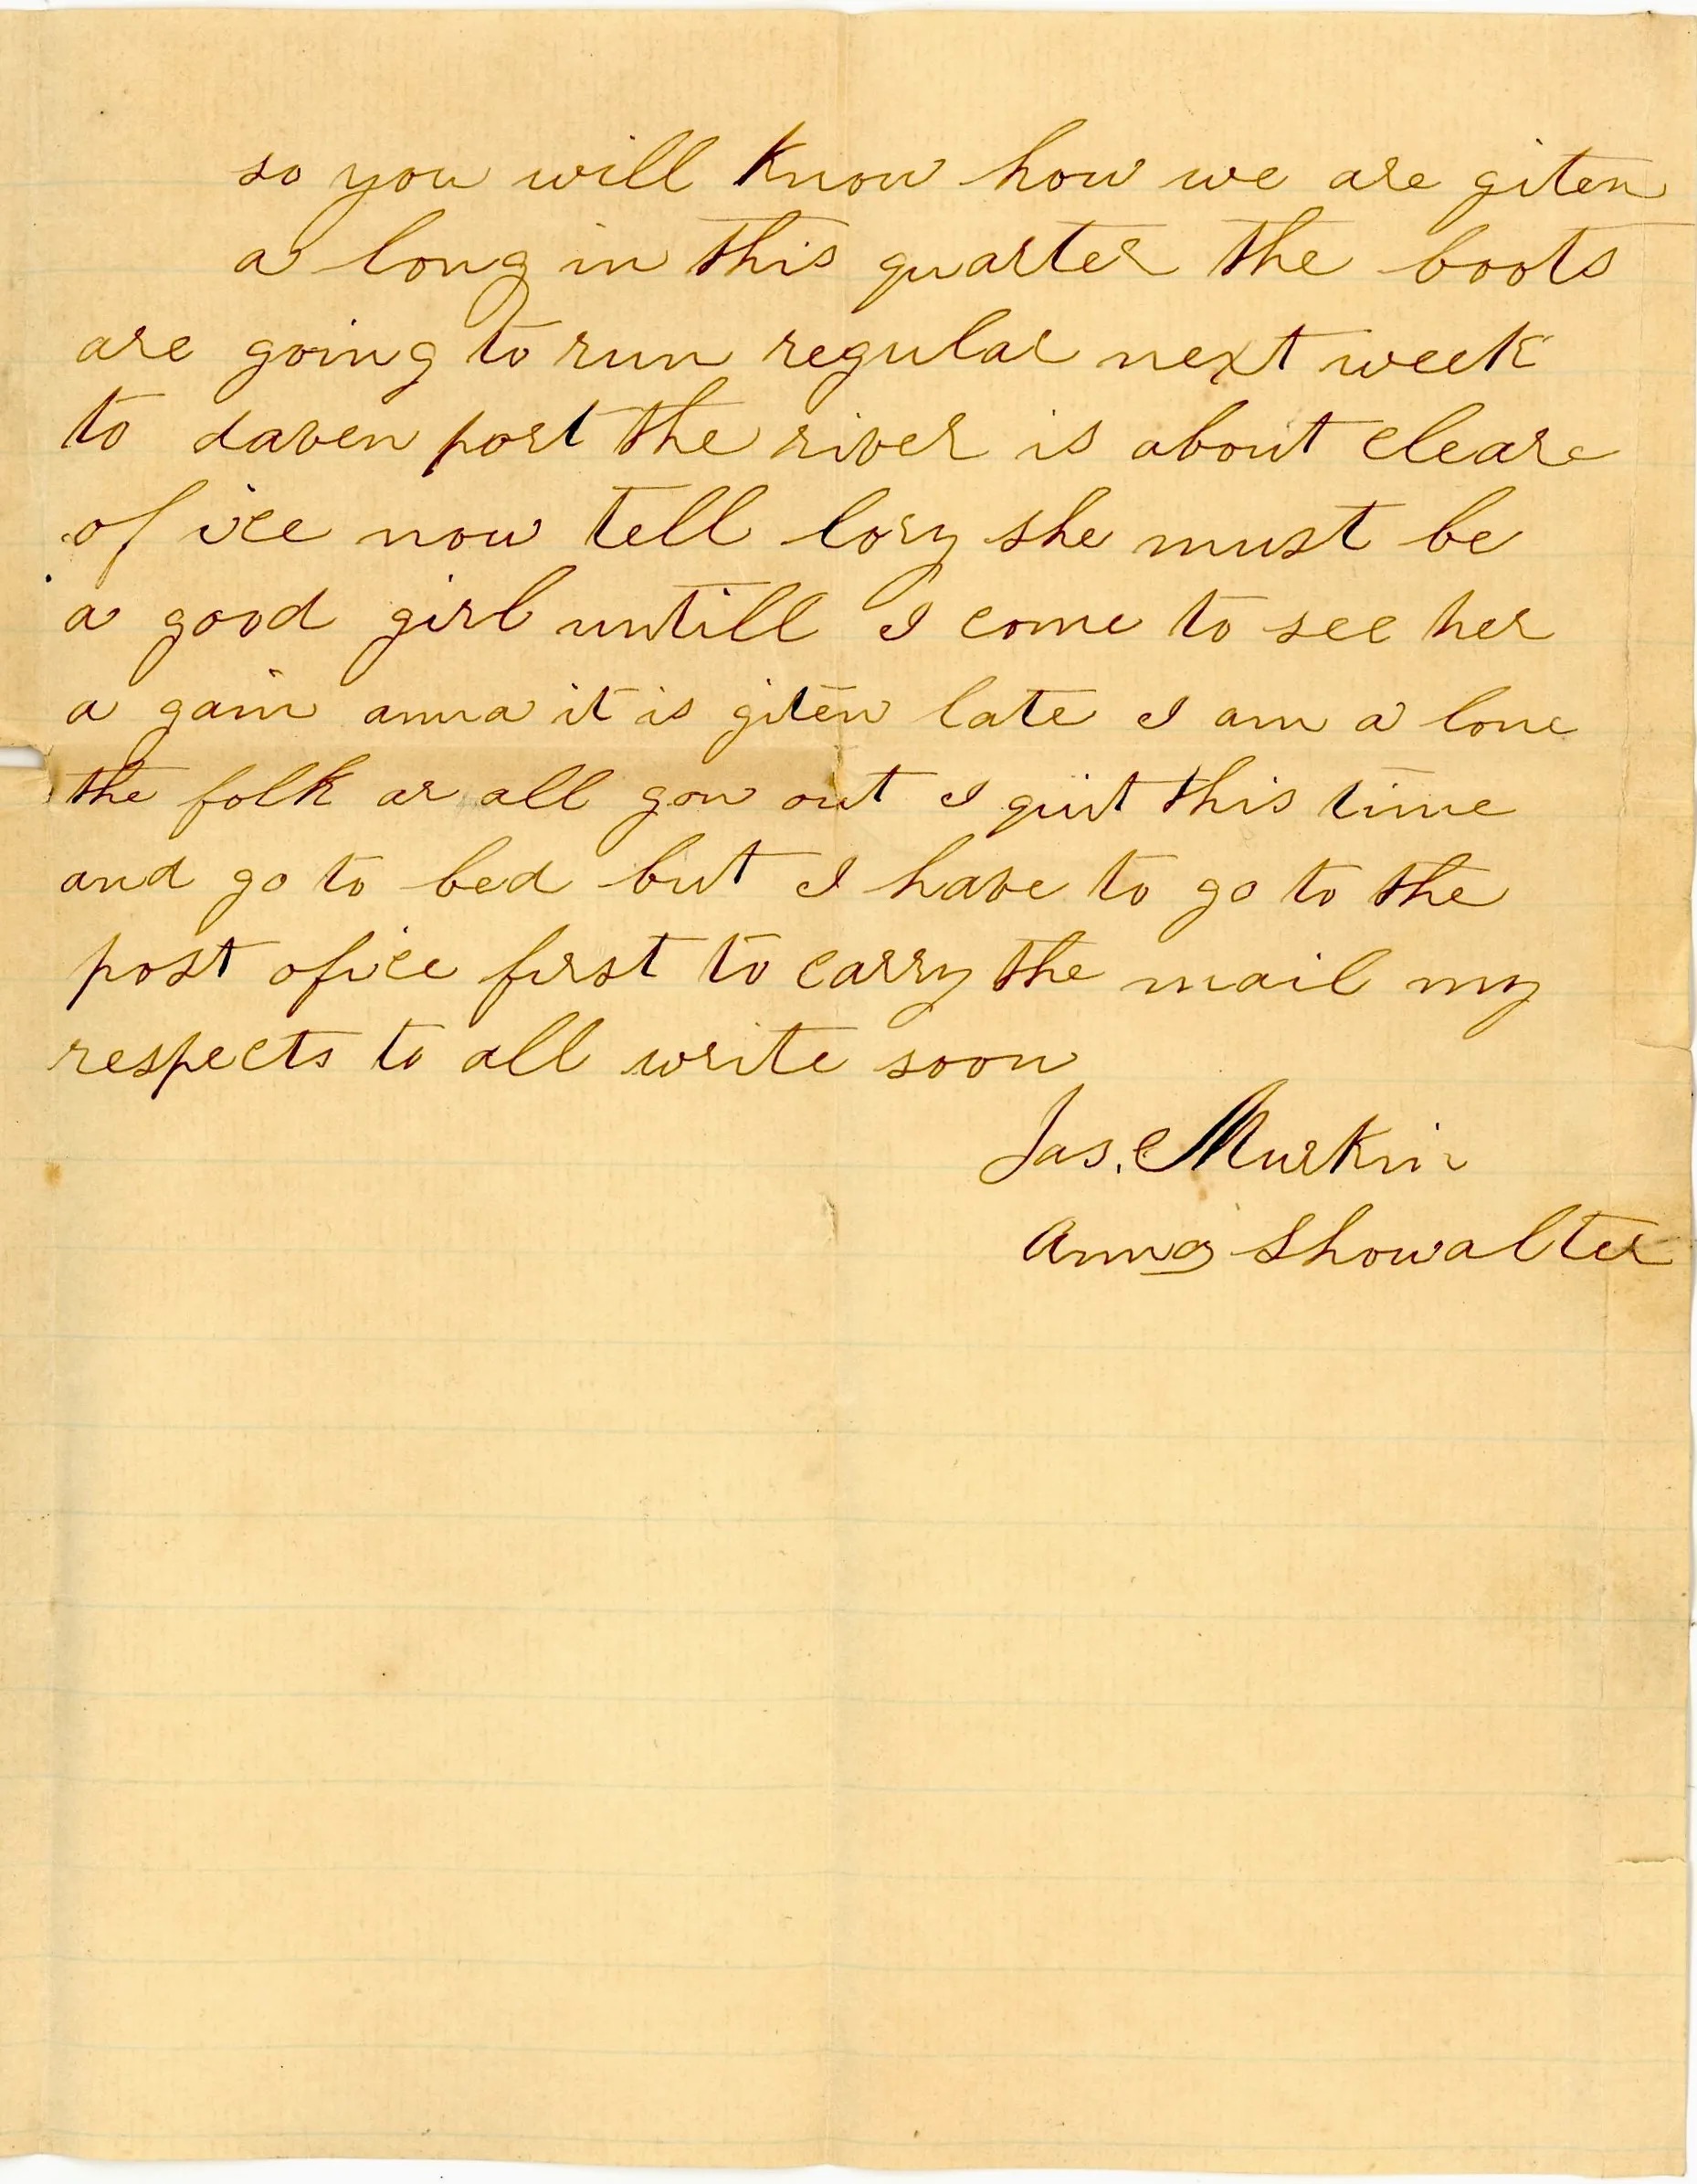 so you will Know how we are giten
a long in this quarter the boots
are going to run regular next week
to daven port the river is about cleare
of ice now tell lory she must be
a good girl untill I come to see her
a gain anna it is giten late I am a lone
the folk ar all gon out I quit this time
and go to bed but I have to go to the
post ofice first to carry the mail my
respects to all write soon
Jas. Murkin
Anna Showalter